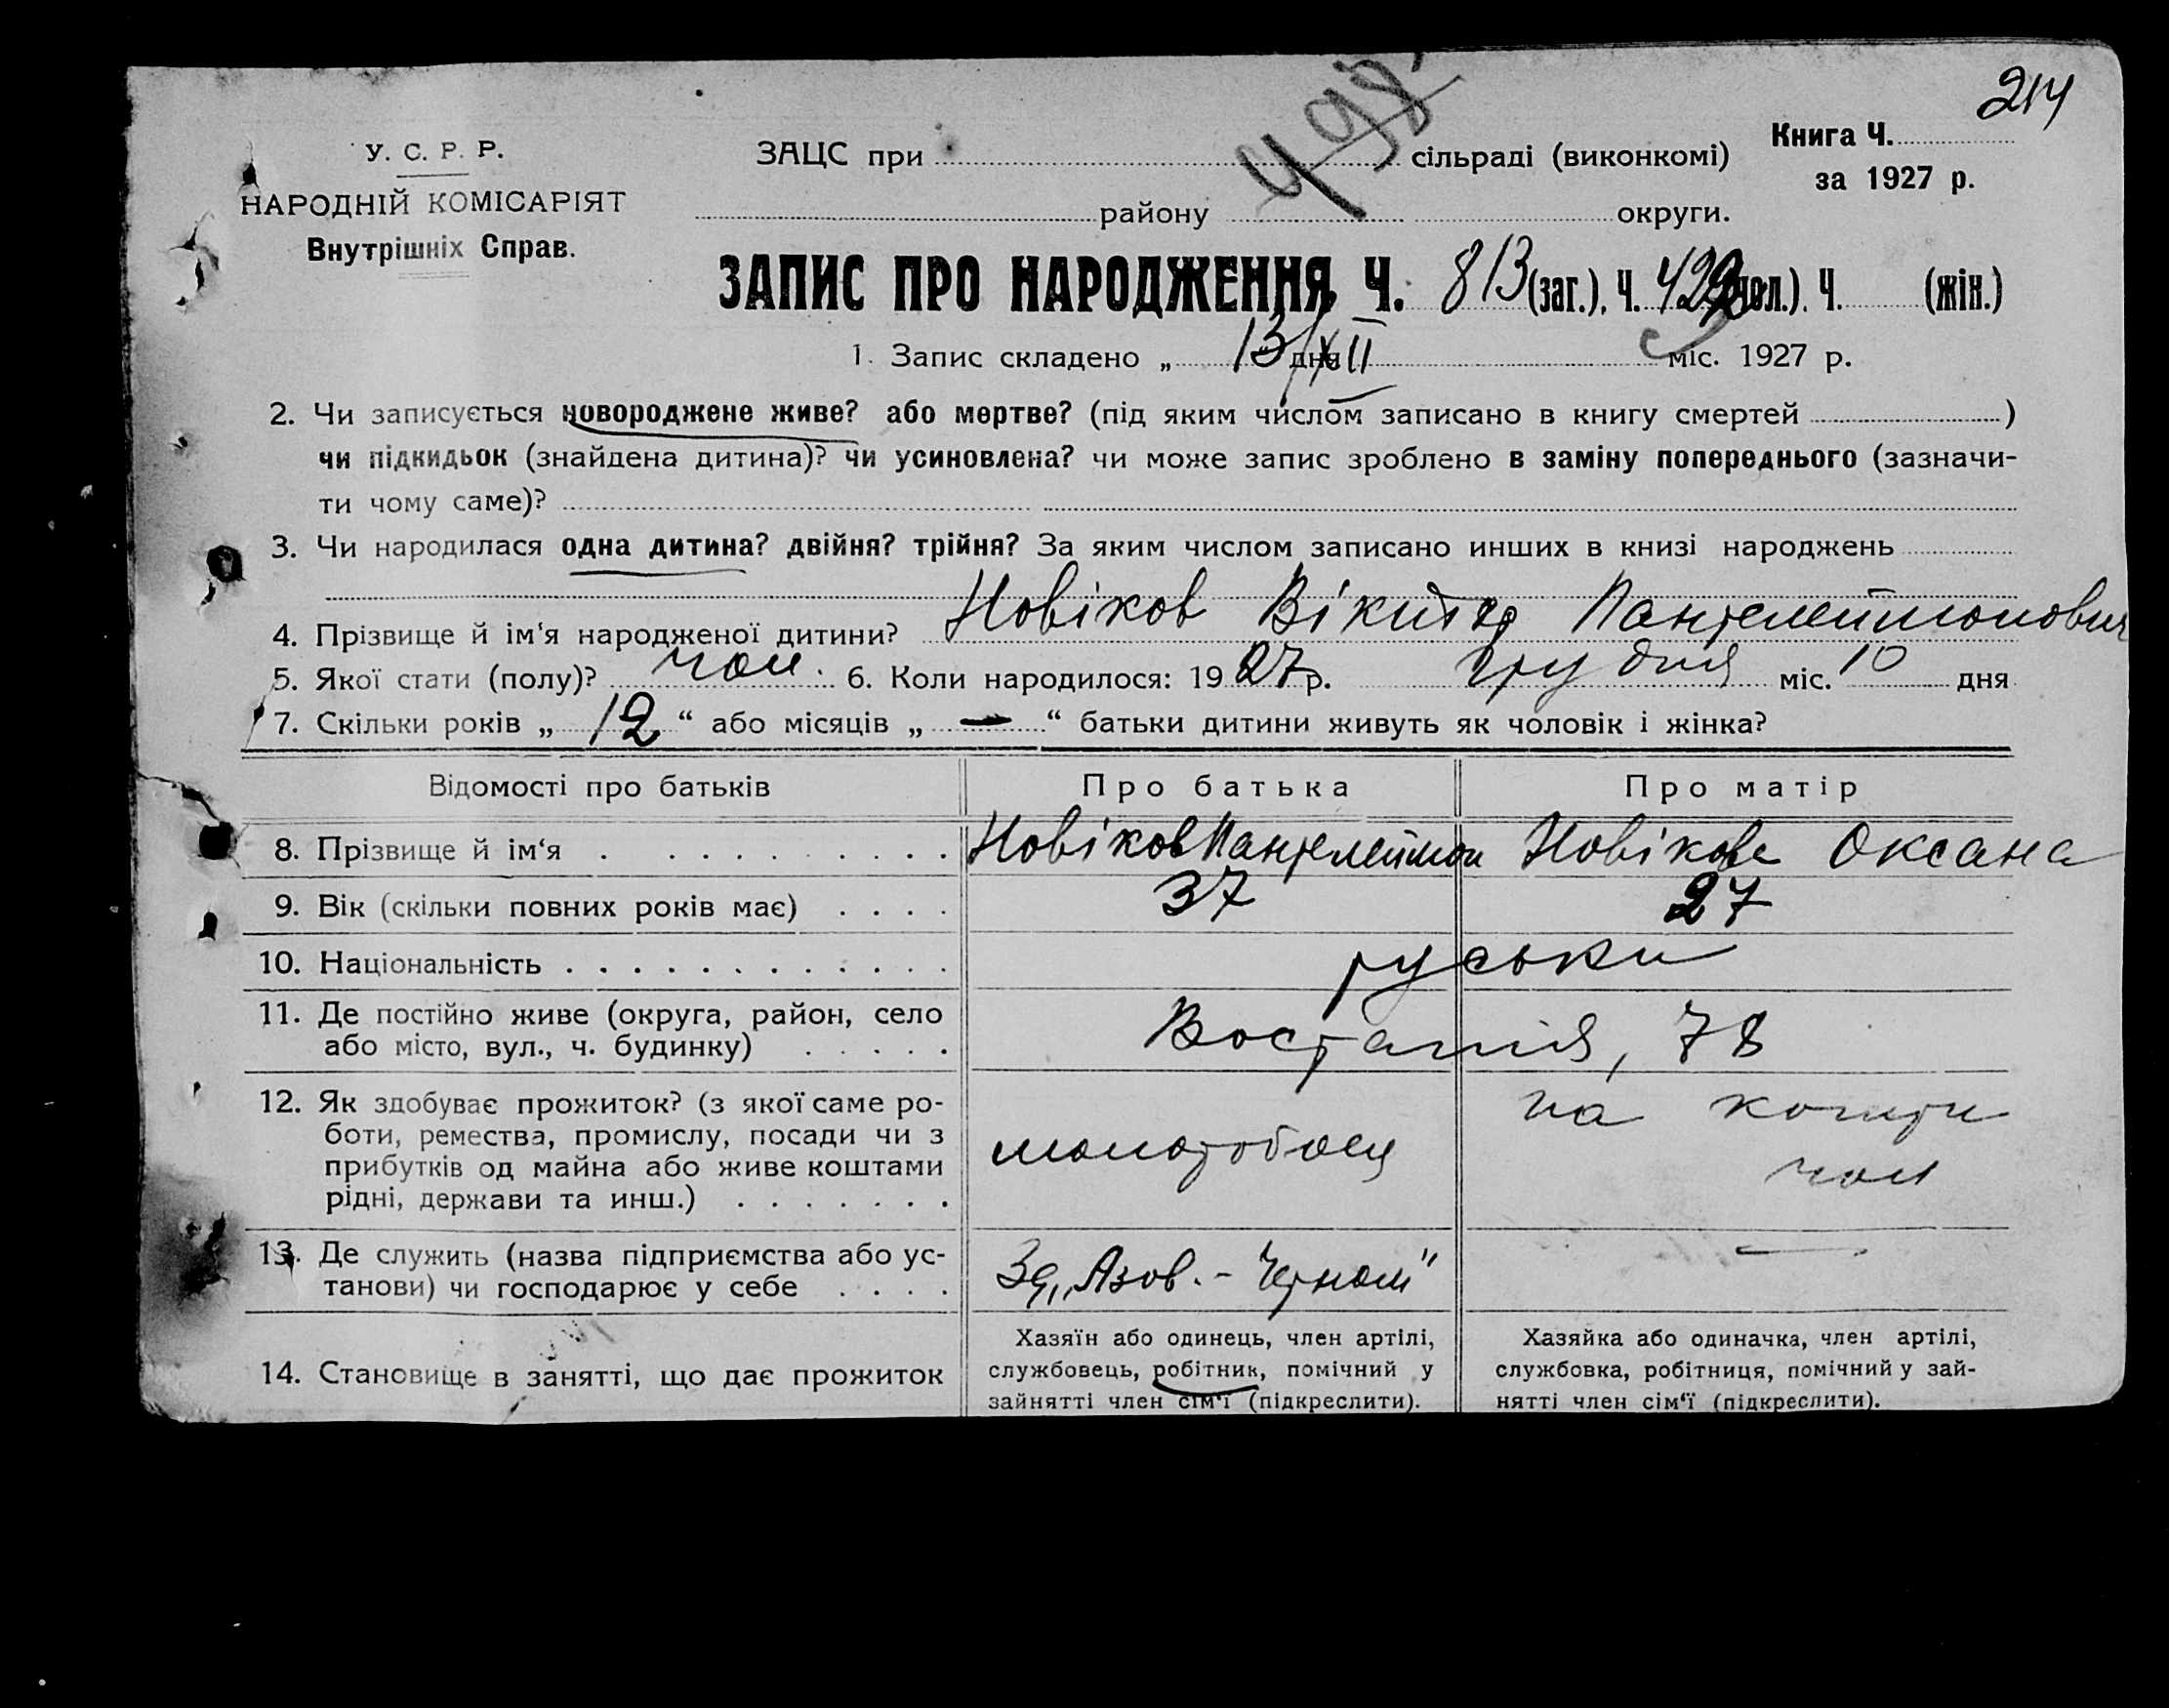 214
У. С. Р. Р.
НАРОДНІЙ КОМІСАРІЯТ
Внутрішніх Справ.
ЗАЦС при сільраді (виконкомі)
району округи.
Книга Ч.
за 1927 р.
ЗАПИС ПРО НАРОДЖЕННЯ, Ч. 813 (заг.), Ч. 422 (чол.). Ч. (жін.)
1. Запис складено „ 13/XII дня міс. 1927 р.
2. Чи записується новороджене живе? або мертве? (під яким числом записано в книгу смертей )
чи підкидьок (знайдена дитина)? чи усиновлена? чи може запис зроблено в заміну попереднього (зазначи-
ти чому саме)?
3. Чи народилася одна дитина? двійня? трійня? За яким числом записано инших в книзі народжень
4. Прізвище й ім‘я народженої дитини? Новіков Віктор Пантелеймонович
5. Якої стати (полу)? чол. 6. Коли народилося: 1927 р. грудня міс. 10 дня
7. Скільки років „ 12 “ або місяців „ — “ батьки дитини живуть як чоловік і жінка?
Відомості про батьків Про батька Про матір
8. Прізвище й ім‘я Новіков Пантелеймон Новікова Оксана
9. Вік (скільки повних років має) 37 27
10. Національність руськи
11. Де постійно живе (округа, район, село
або місто, вул., ч. будинку) Востания, 78
12. Як здобуває прожиток? (з якої саме ро-
боти, ремества, промислу, посади чи з
прибутків од майна або живе коштами
рідні, держави та инш.)
молотобоец
на кошти
чол
13. Де служить (назва підприємства або ус-
танови) чи господарює у себе
Зд „Азов.-Черном“ —
14. Становище в занятті, що дає прожиток
Хазяїн або одинець, член артілі,
службовець, робітник, помічний у
зайнятті член сім‘ї (підкреслити).
Хазяйка або одиначка, член артілі,
службовка, робітниця, помічний у зай-
нятті член сім‘ї (підкреслити).